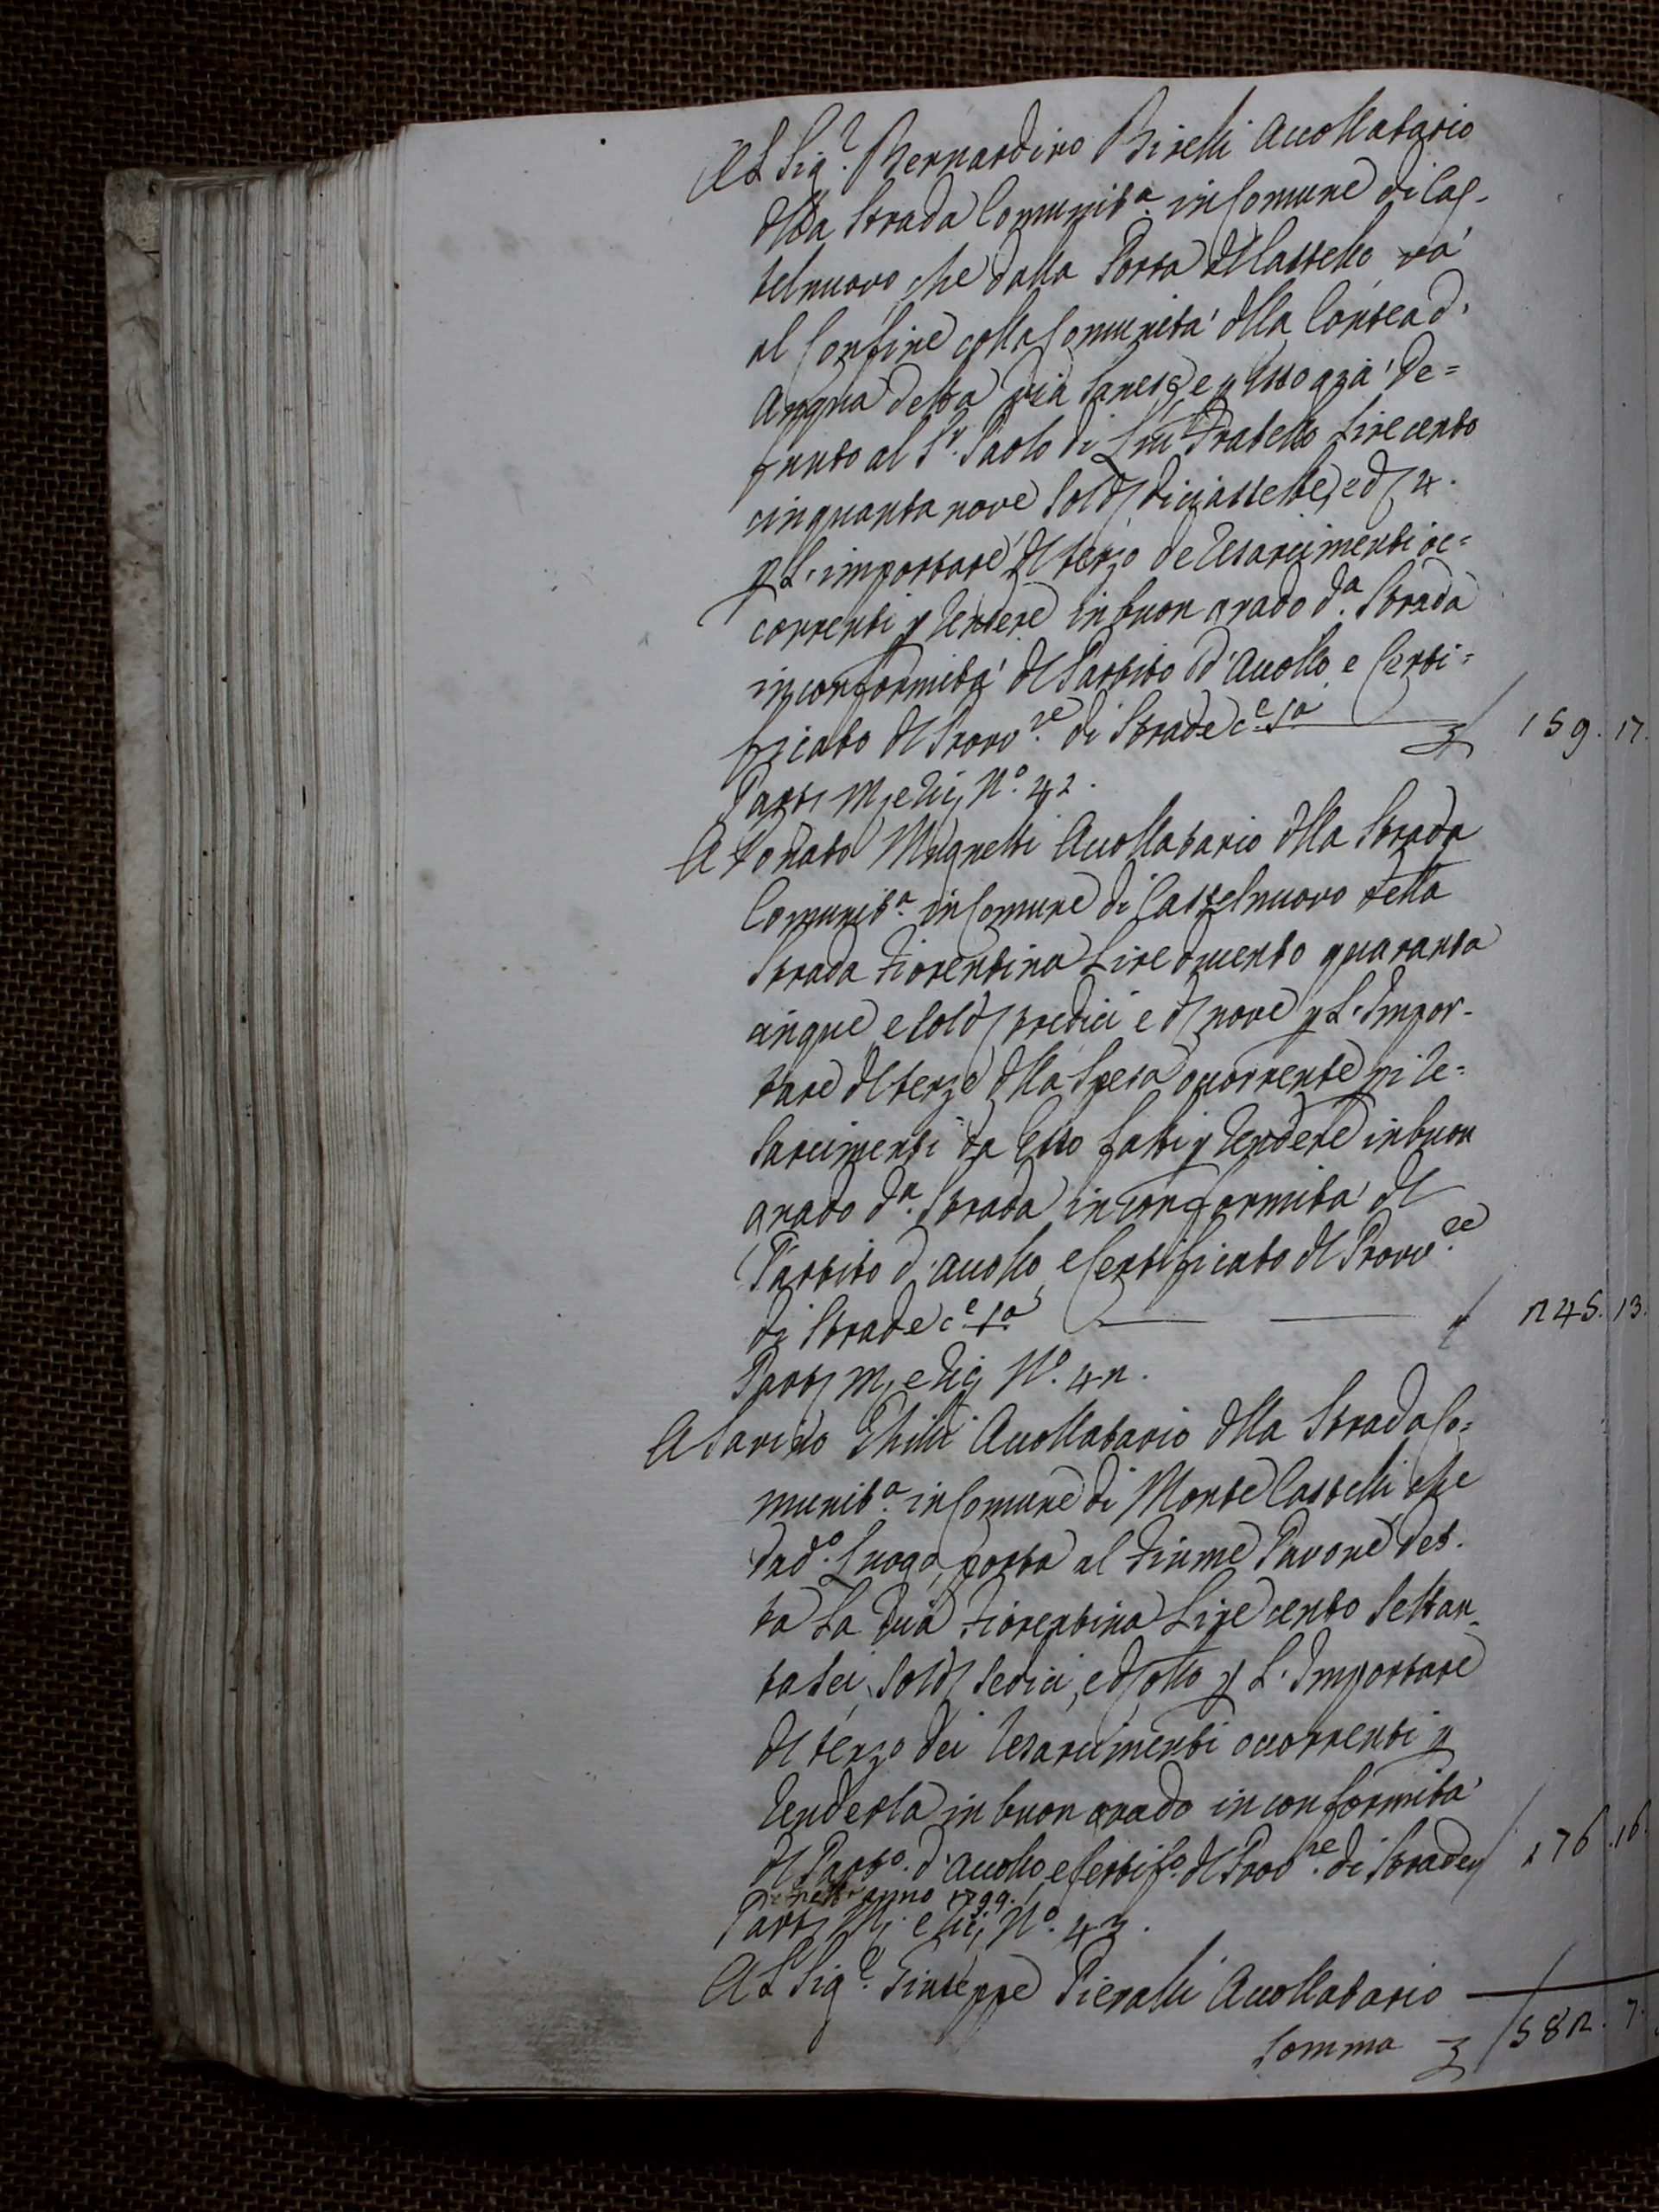 Al Sig.r Bernardino Birelli Accollatario
della Strada Comunit.a in Comune di Cas-
telnuovo che dalla Porta del Castello và
al Confine colla Comunità della Contea d'
detta Via Sanese e p esso già De=
funto al S.r Paolo di Lui Fratello Lire cento
cinquanta nove Soldi diciassette, e d 4.
p L'importare del terzo de Resarcimenti oc=
correnti p rendere in buon grado d.a Strada
in conformità del Partito d'Accollo e Certi=
ficato del Provv.re di Strade 159.17.
Part M, e Rij N.o 42.
A Donato Mugnetti Accollatario della Strada
Comunit.a in Comune di Castelnuovo della
Strada Fiorentina Lire duecento quaranta
cinque e Sold tredici e d nove p L'Impor-
tare del terzo della Spesa occorrente pi Re=
sarcimenti da Esso fatti p rendere in buon
grado d.a Strada in conformità del
Partito d'accollo e Certificato del Provv.re
di Strade 245.13.
Part M, e Rij N.o 42.
A Savino Ghilli Accollatario della Strada Co=
munit.a in Comune di Monte Castelli che
da d.o Luogo porta al Fiume Pavone det-
ta La Via Fiorentina Lire cento Settan-
tasei Sold Sedici, e d otto p L'Importare
del terzo dei Resarcimenti occorrenti p
renderla in buon grado in conformità
del Part.o d'accollo, e Certif.o del Provv.re di Strade 176.16.
anno 1799.
Part M, e Rij N.o 43.
Al Sig.r Giuseppe Pieralli Accollatario
Somma 582.7.